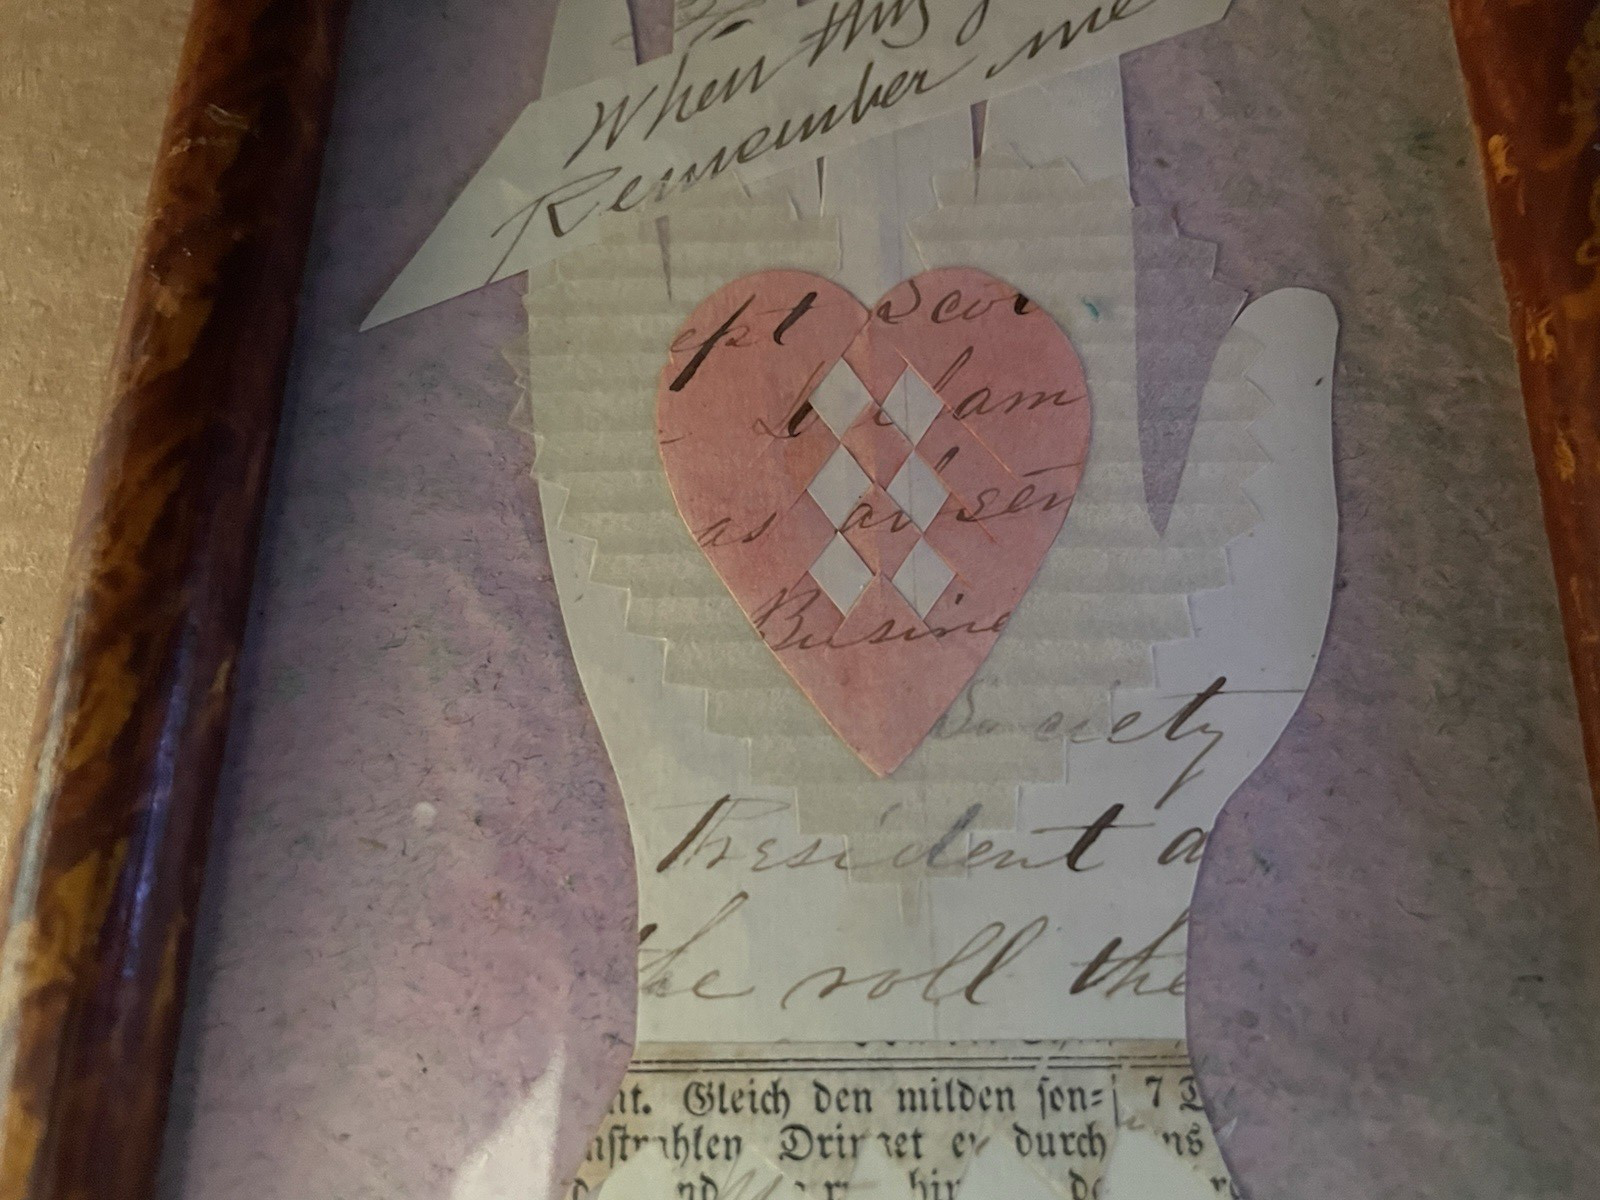 When this
Remember me
ept Scor
I am
as av sen
Busine
Society
President a
the roll the
nt. Gleich den milden son= 7
nstrahlen Dringet er durch ns